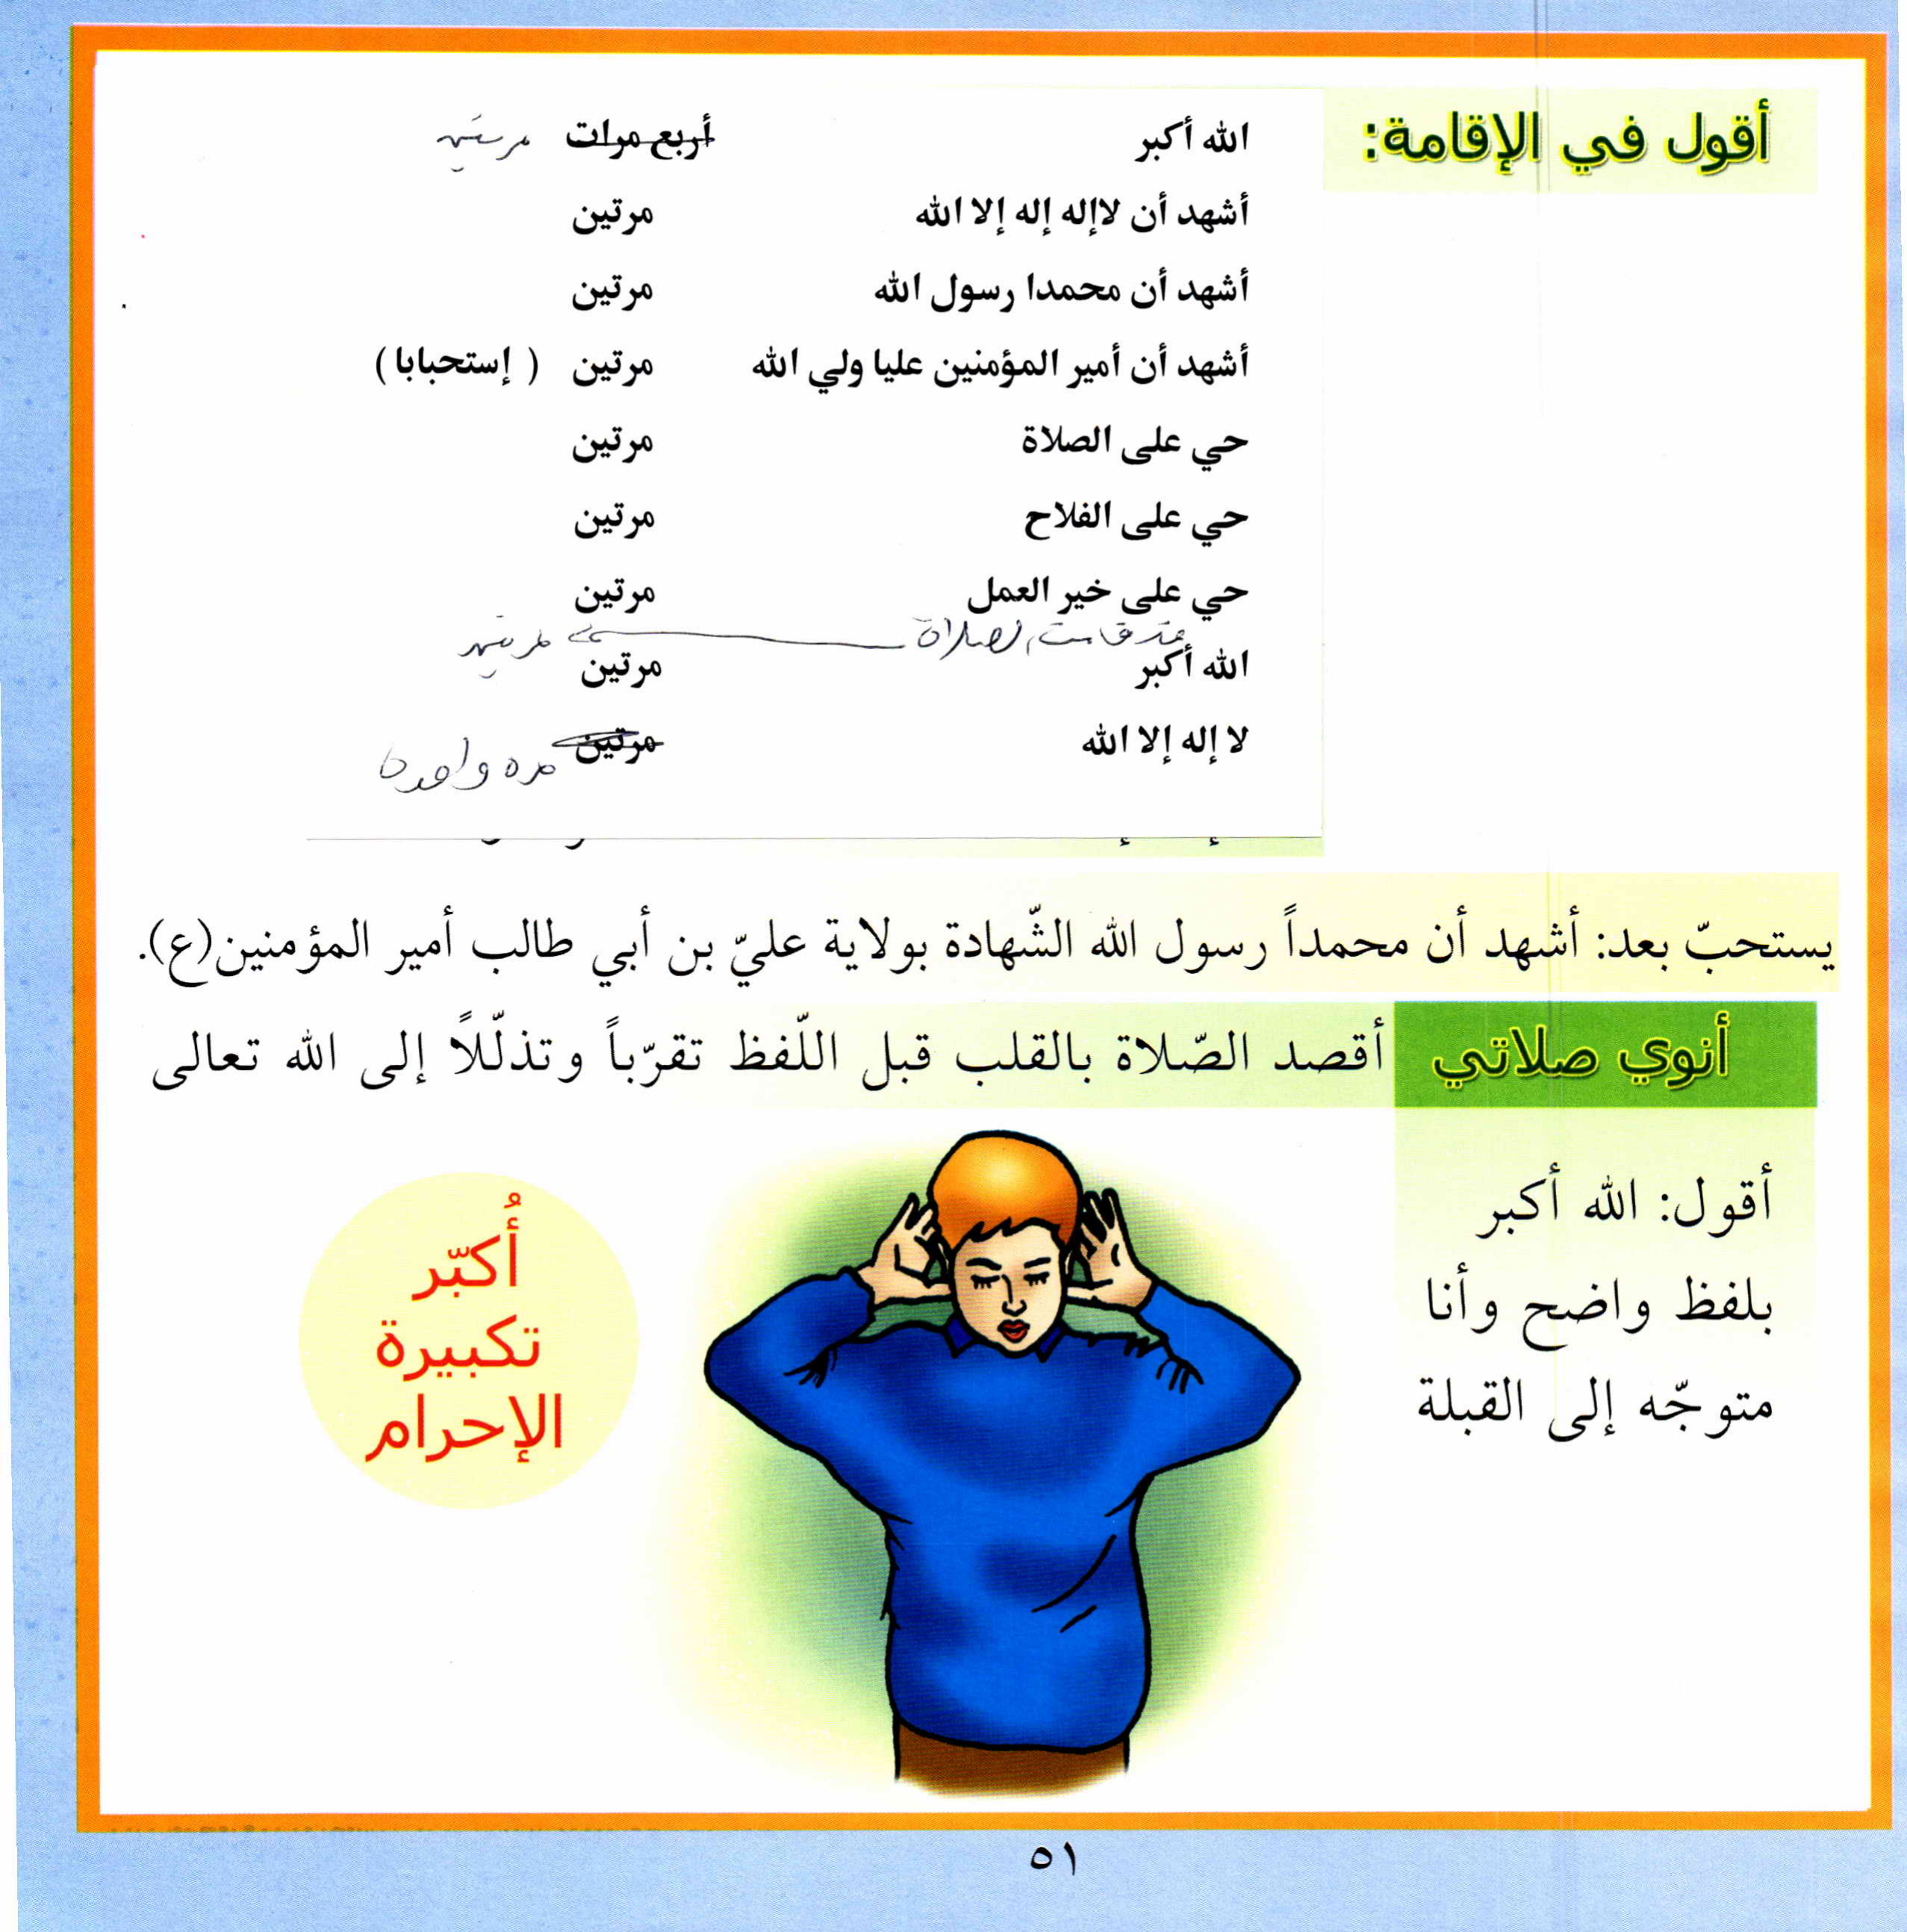 أقول في الإقامة:
الله أكبر أربع مرات مرتين
أشهد أن لاإله إله إلا الله مرتين
أشهد أن محمدا رسول الله مرتين
أشهد أن أمير المؤمنين عليا ولي الله مرتين ( إستحبابا )
حي على الصلاة مرتين
حي على الفلاح مرتين
حي على خير العمل مرتين
قد قامت الصلاة مرتين
الله أكبر مرتين
لا إله إلا الله مرتين مره واحدة
يستحبّ بعد: أشهد أن محمداً رسول الله الشّهادة بولاية عليّ بن أبي طالب أمير المؤمنين(ع).
أنوي صلاتي أقصد الصّلاة بالقلب قبل اللّفظ تقرّباً وتذلّلاً إلى الله تعالى
أقول: الله أكبر
بلفظ واضح وأنا
متوجّه إلى القبلة
أُكبّر
تكبيرة
الإحرام
٥١